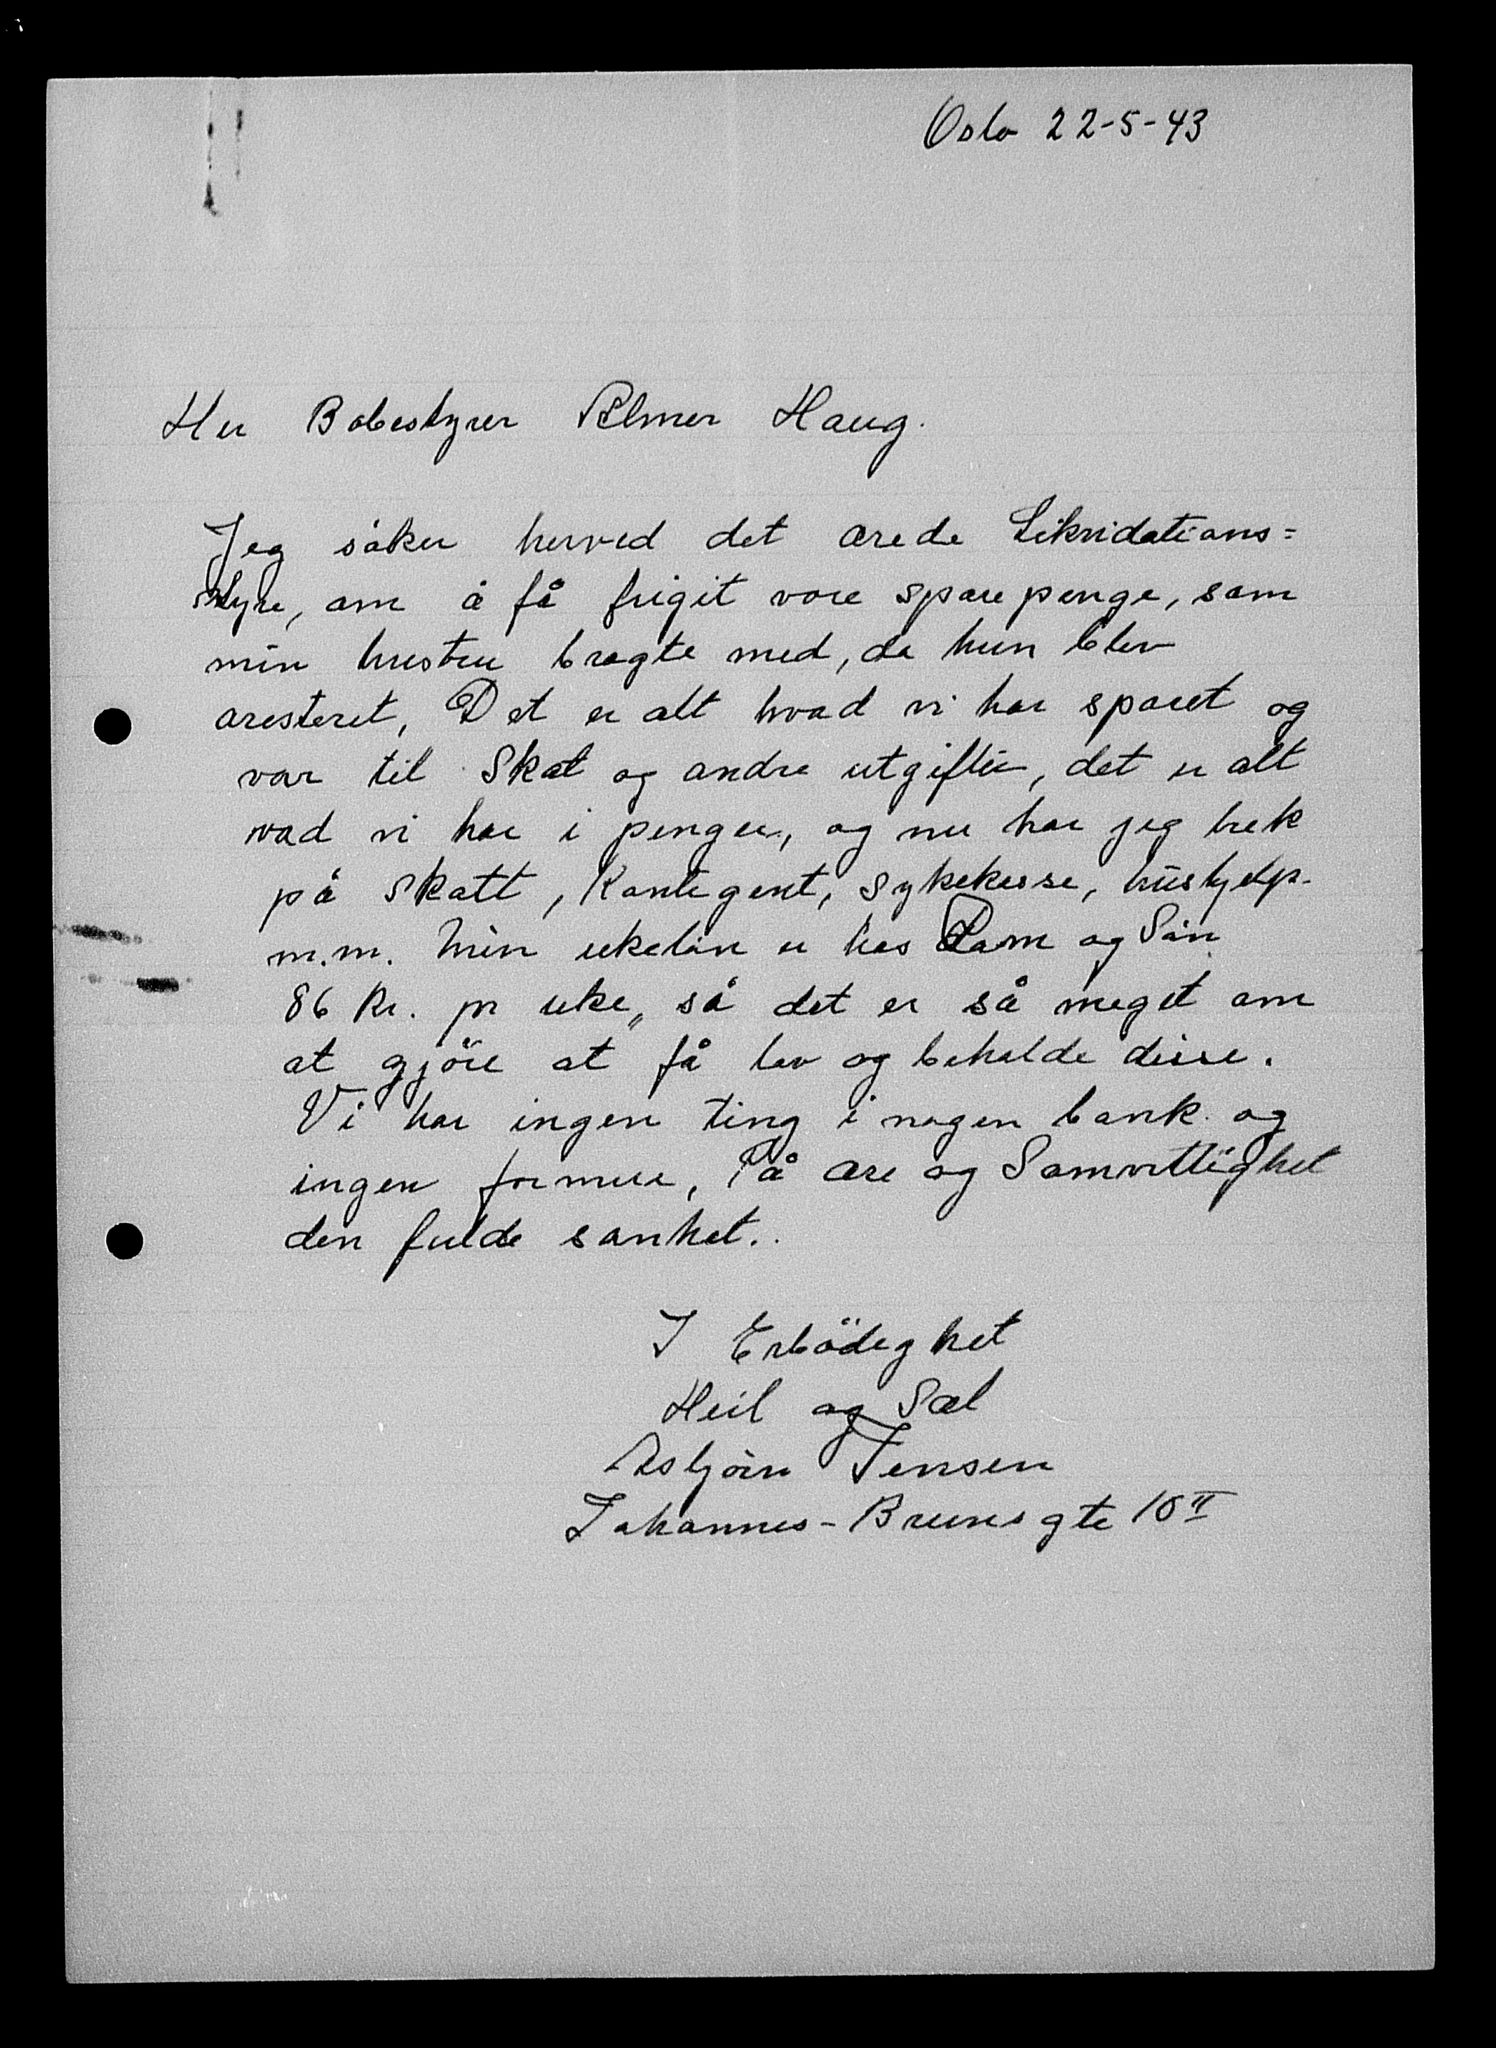 Oslo 22-5-43
Her Bobestyrer Almer Haug.
Jeg söker herved det ærede Likvidations=
styre, om å få frigit vore sparepenge, som
min hustru bragte med, da hun blev
aresteret, Det er alt hvad vi har sparet og
var til Skat og andre utgifter, det er alt
vad vi har i penger, og nu har jeg trek
på Skatt, Kontegent, Sykekasse, hüshjelp.
m.m. Min ukelön er hos Dam og Sön
86 Kr. pr uke,, så det er så meget om
at gjöre at få lov og beholde disse.
Vi har ingen ting i nogen bank og
ingen formue, På ære og Samvittighet
den fulde sanhet..
I Erbödeghet
Heil og Sæl
Asbjörn Jensen
Johannes-Brunsgte 10 II